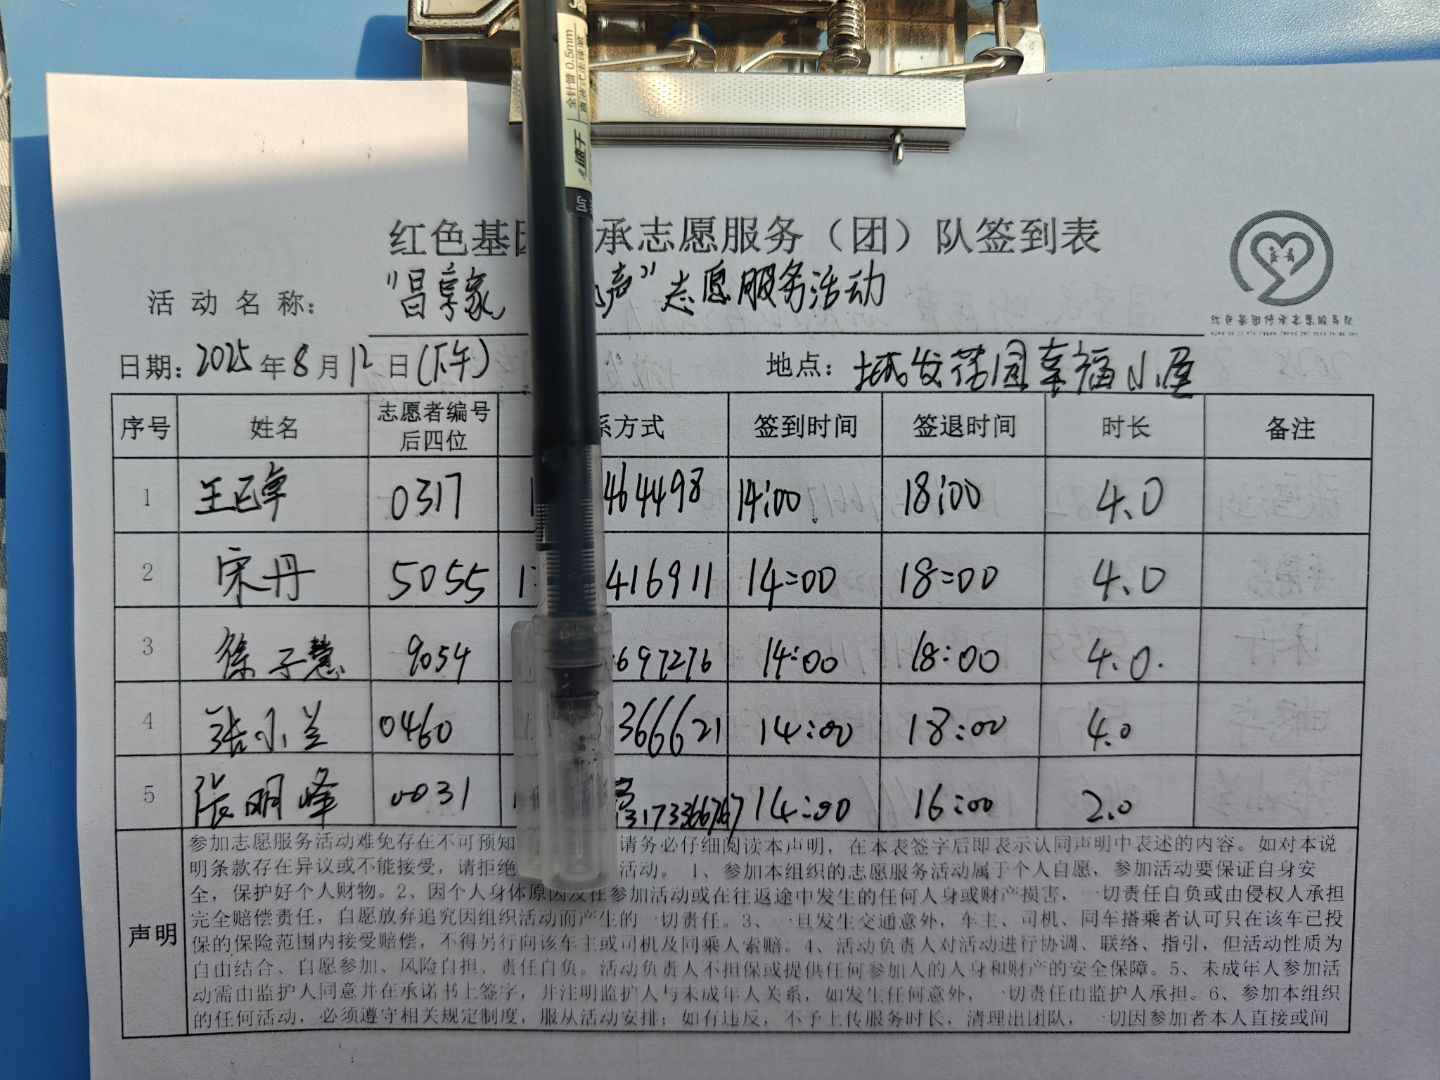 全针管0.5mm
红色基 承志愿服务（团）队签到表
活动名称： “昌享家 声”志愿服务活动
红色基因传承志愿服务队
日期：2025年8月12日(下午) 地点：城发花园幸福小屋
序号 姓名 志愿者编号后四位 系方式 签到时间 签退时间 时长 备注
1 王正卓 0317 1 464498 14:00 18:00 4.0
2 宋丹 5055 1 416911 14:00 18:00 4.0
3 徐子慧 9054 697276 14:00 18:00 4.0.
4 张小兰 0460 366621 14:00 18:00 4.0
5 张明峰 0031 13173366767 14:00 16:00 2.0
声明
参加志愿服务活动难免存在不可预知 请务必仔细阅读本声明，在本表签字后即表示认同声明中表述的内容。如对本说
明条款存在异议或不能接受，请拒绝 活动。 1、参加本组织的志愿服务活动属于个人自愿，参加活动要保证自身安
全，保护好个人财物。2、因个人身体原因及在参加活动或在往返途中发生的任何人身或财产损害，一切责任自负或由侵权人承担
完全赔偿责任，自愿放弃追究因组织活动而产生的一切责任。3、一旦发生交通意外，车主、司机、同车搭乘者认可只在该车已投
保的保险范围内接受赔偿，不得另行向该车主或司机及同乘人索赔。4、活动负责人对活动进行协调、联络、指引，但活动性质为
自由结合、自愿参加、风险自担、责任自负。活动负责人不担保或提供任何参加人的人身和财产的安全保障。5、未成年人参加活
动需由监护人同意并在承诺书上签字，并注明监护人与未成年人关系，如发生任何意外，一切责任由监护人承担。6、参加本组织
的任何活动，必须遵守相关规定制度，服从活动安排；如有违反，不予上传服务时长，清理出团队，一切因参加者本人直接或间